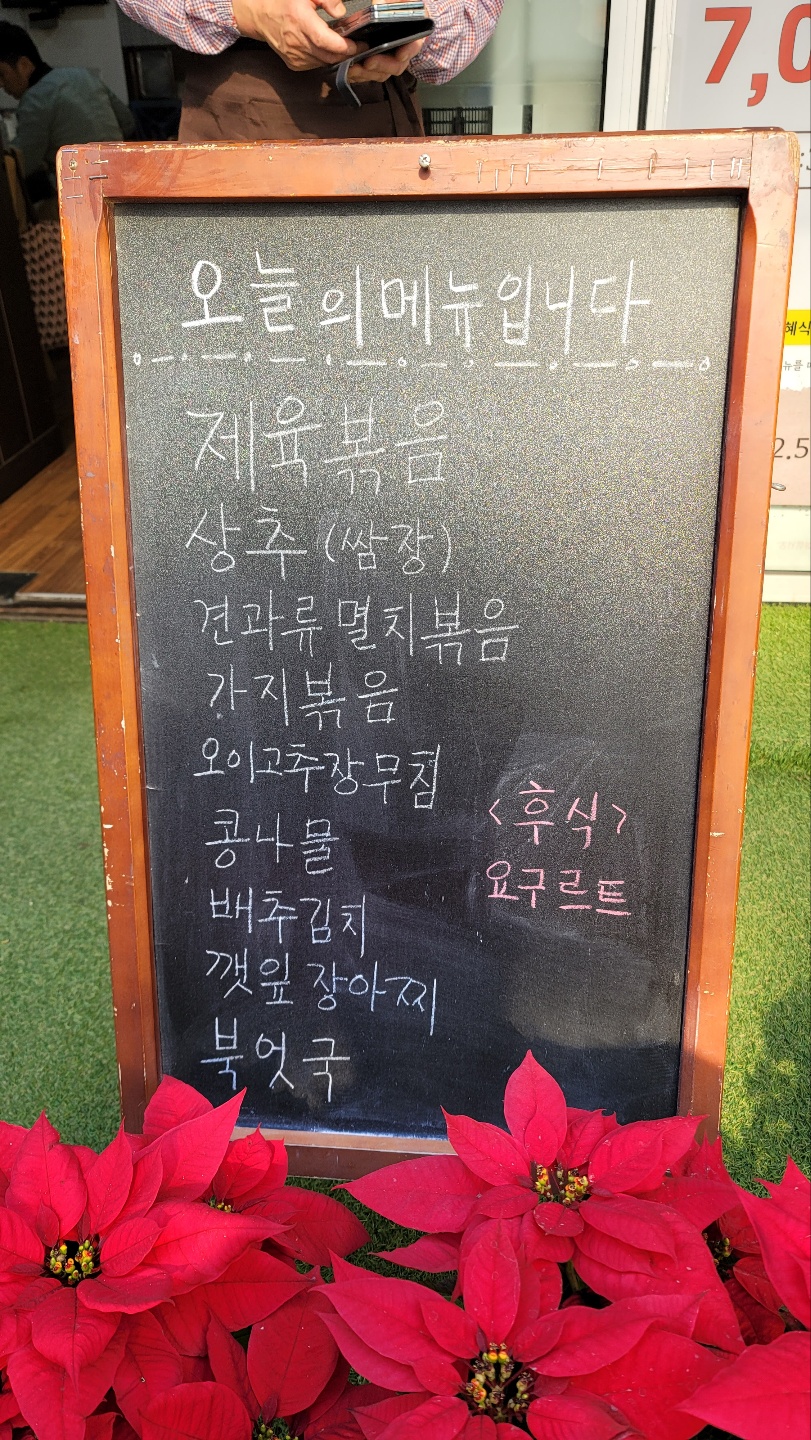 7,0
오늘의메뉴입니다
제육볶음
상추(쌈장)
견과류멸치볶음
가지볶음
오이고추장무침
콩나물
배추김치
깻잎장아찌
북엇국
<후식>
요구르트
혜식
2.5